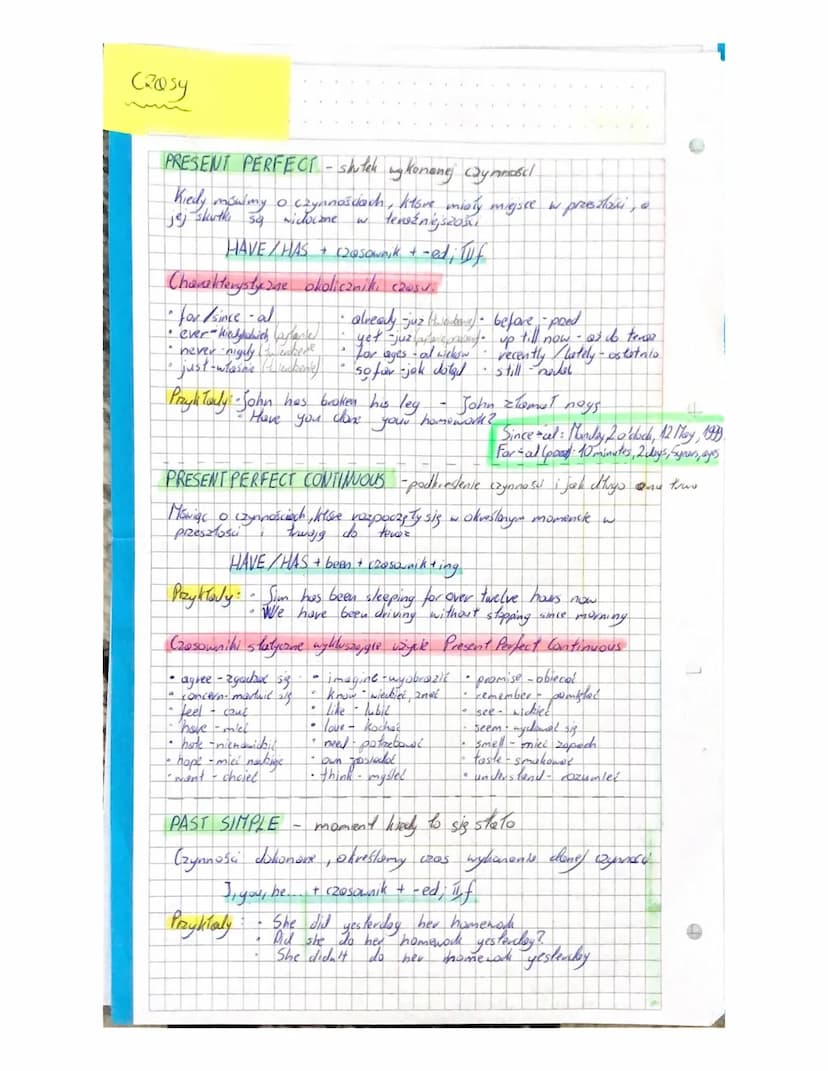 Czasy
PRESENT PERFECT - skutek wykonanej czynności
Kiedy mówimy o czynnościach, które miały miejsce w przeszłości, a
jej skutki są widoczne w teraźniejszości
HAVE/HAS + czasownik + -ed; IIIf
Charakterystyczne okoliczniki czasu:
• for/since - od • already - już (twierdzenie) • before - przed
• ever - kiedykolwiek (pytanie) • yet - już (pytanie, przeczenie) • up till now - aż do teraz
• never - nigdy (twierdzenie) • for ages - od wieków • recently /lately - ostatnio
• just - właśnie (twierdzenie) • so far - jak dotąd • still - nadal
Przykłady: • John has broken his leg - John złamał nogę
• Have you done your homework?
Since - od: Monday, 2 o'clock, 12 May, 1999
For - od (przez) 10 minutes, 2 days, 5 years, ages
PRESENT PERFECT CONTINUOUS - podkreślenie czynności i jak długo ona trwa
Mówiąc o czynnościach, które rozpoczęły się w określonym momencie w
przeszłości i trwają do teraz
HAVE/HAS + been + czasownik + ing
Przykłady: • Sim has been sleeping for over twelve hours now
• We have been driving without stopping since morning
Czasowniki statyczne wykluczające użycie Present Perfect Continuous
• agree - zgadzać się • imagine - wyobrazić • promise - obiecać
• concern - martwić się • know - wiedzieć, znać • remember - pamiętać
• feel - czuć • like - lubić • see - widzieć
• have - mieć • love - kochać • seem - wydawać się
• hate - nienawidzić • need - potrzebować • smell - mieć zapach
• hope - mieć nadzieję • own posiadać • taste - smakować
• want - chcieć • think - myśleć • understand - rozumieć
PAST SIMPLE - moment kiedy to się stało
Czynności dokonane, określamy czas wykonania danej czynności
I, you, he... + czasownik + -ed; IIf
Przykłady: • She did yesterday her homework
• Did she do her homework yesterday?
• She didn't do her homework yesterday